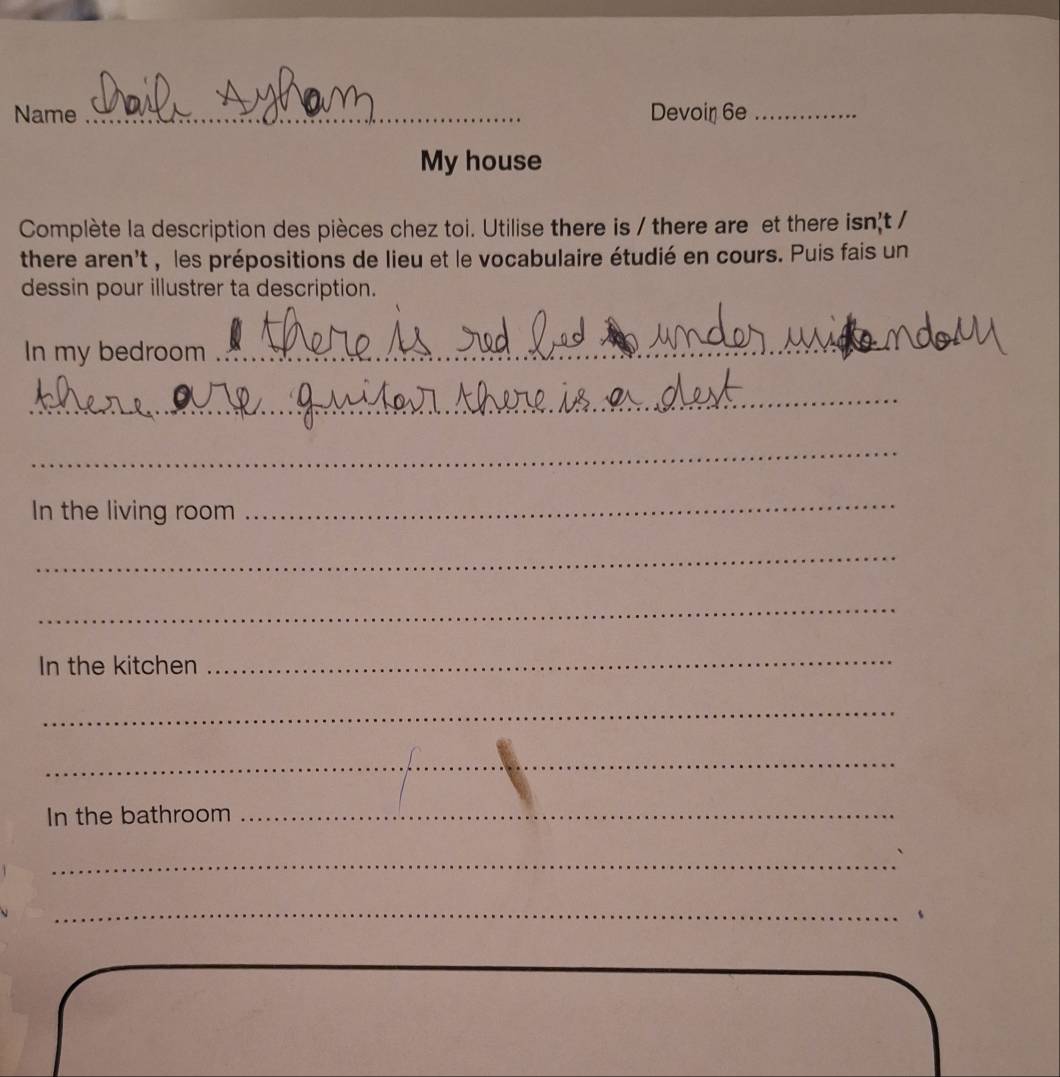 Name Ayham Devoir 6e
My house
Complète la description des pièces chez toi. Utilise there is / there are et there isn't /
there aren't , les prépositions de lieu et le vocabulaire étudié en cours. Puis fais un
dessin pour illustrer ta description.
In my bedroom there is red bed under windom
there are guitar there is a dest
In the living room
In the kitchen
In the bathroom